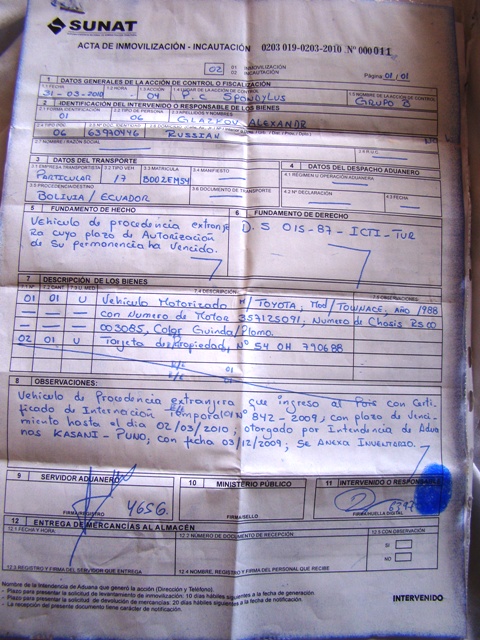 SUNAT
ACTA DE INMOVILIZACIÓN - INCAUTACIÓN 0203 019-0203-2010 .Nº 000011
02 01 INMOVILIZACIÓN
02 INCAUTACIÓN
Página 01/01
1 DATOS GENERALES DE LA ACCIÓN DE CONTROL O FISCALIZACIÓN
1.1 FECHA 1.2 HORA 1.3 ACCIÓN 1.4 LUGAR DE LA ACCIÓN DE CONTROL 1.5 NOMBRE DE LA ACCIÓN DE CONTROL
31-03-2010 04 P.C SPONDYLUS GRUPO B
2 IDENTIFICACIÓN DEL INTERVENIDO O RESPONSABLE DE LOS BIENES
01 06 GLAZKOV ALEXANDR
06 RUSSIAN
2.7 NOMBRE / RAZÓN SOCIAL
3 DATOS DEL TRANSPORTE 4 DATOS DEL DESPACHO ADUANERO
3.1 EMPRESA TRANSPORTISTA 3.2 TIPO VEH 3.3 MATRÍCULA 3.4 MANIFIESTO 4.1 RÉGIMEN U OPERACIÓN ADUANERA
PARTICULAR 17
3.5 PROCEDENCIA/DESTINO 3.6 DOCUMENTO DE TRANSPORTE 4.2 Nº DECLARACIÓN 4.3 FECHA
BOLIVIA / ECUADOR
5 FUNDAMENTO DE HECHO 6 FUNDAMENTO DE DERECHO
Vehículo de procedencia extranje D. S 015-87-ICTI-TUR
ra cuyo plazo de Autorización
de Su permanencia ha Vencido.
7 DESCRIPCIÓN DE LOS BIENES
7.1 Nº 7.2 CANT. 7.3 U. MED 7.4 DESCRIPCIÓN 7.5 OBSERVACIONES
01 01 U Vehículo Motorizado M/TOYOTA, Mod/TOWNACE, Año/1988
con Numero de Motor 357125091, Numero de Chasis R500
003085, Color Guinda/Plomo.
02 01 U Tarjeta de Propiedad, Nº 54 0H 790688
8 OBSERVACIONES:
Vehículo de Procedencia extranjera que ingreso al País con Certi-
ficado de Internación Temporal Nº 842-2009; con plazo de Venci-
miento hasta el dia 02/03/2010; otorgado por Intendencia de Adua
nas KASANI - PUNO; con fecha 03/12/2009; SE ANEXA INVENTARIO.
9 SERVIDOR ADUANERO 10 MINISTERIO PÚBLICO 11 INTERVENIDO O RESPONSABLE
4656.
FIRMA/SELLO FIRMA/HUELLA DIGITAL
12 ENTREGA DE MERCANCÍAS AL ALMACÉN
12.1 FECHA Y HORA 12.2 NÚMERO DE DOCUMENTO DE RECEPCIÓN 12.5 CON OBSERVACIÓN
SI
NO
12.3 REGISTRO Y FIRMA DEL SERVIDOR QUE ENTREGA 12.4 NOMBRE, REGISTRO Y FIRMA DEL PERSONAL QUE RECIBE
Nombre de la Intendencia de Aduana que generó la acción (Dirección y Teléfono).
- Plazo para presentar la solicitud de levantamiento de inmovilización: 10 días hábiles siguientes a la fecha de generación
- Plazo para presentar la solicitud de devolución de mercancías: 20 días hábiles siguientes a la fecha de notificación.
- La recepción del presente documento tiene carácter de notificación.
INTERVENIDO